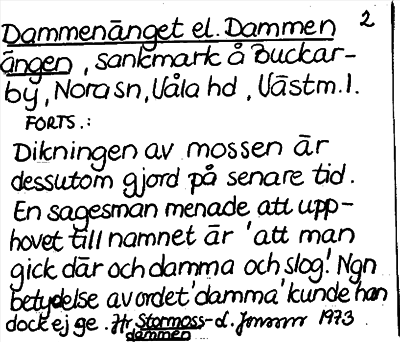 2
Dammenänget el. Dammen
ängen, sankmark å Buckar-
by, Nora sn, Våla hd, Västm. l.
FORTS.:
Dikningen av mossen är
dessutom gjord på senare tid.
En sagesman menade att upp-
hovet till namnet är 'att man
gick där och damma och slog'. Ngn
betydelse av ordet 'damma' kunde han
dock ej ge. Jfr Stormoss-d. Jonsson 1973
dammen